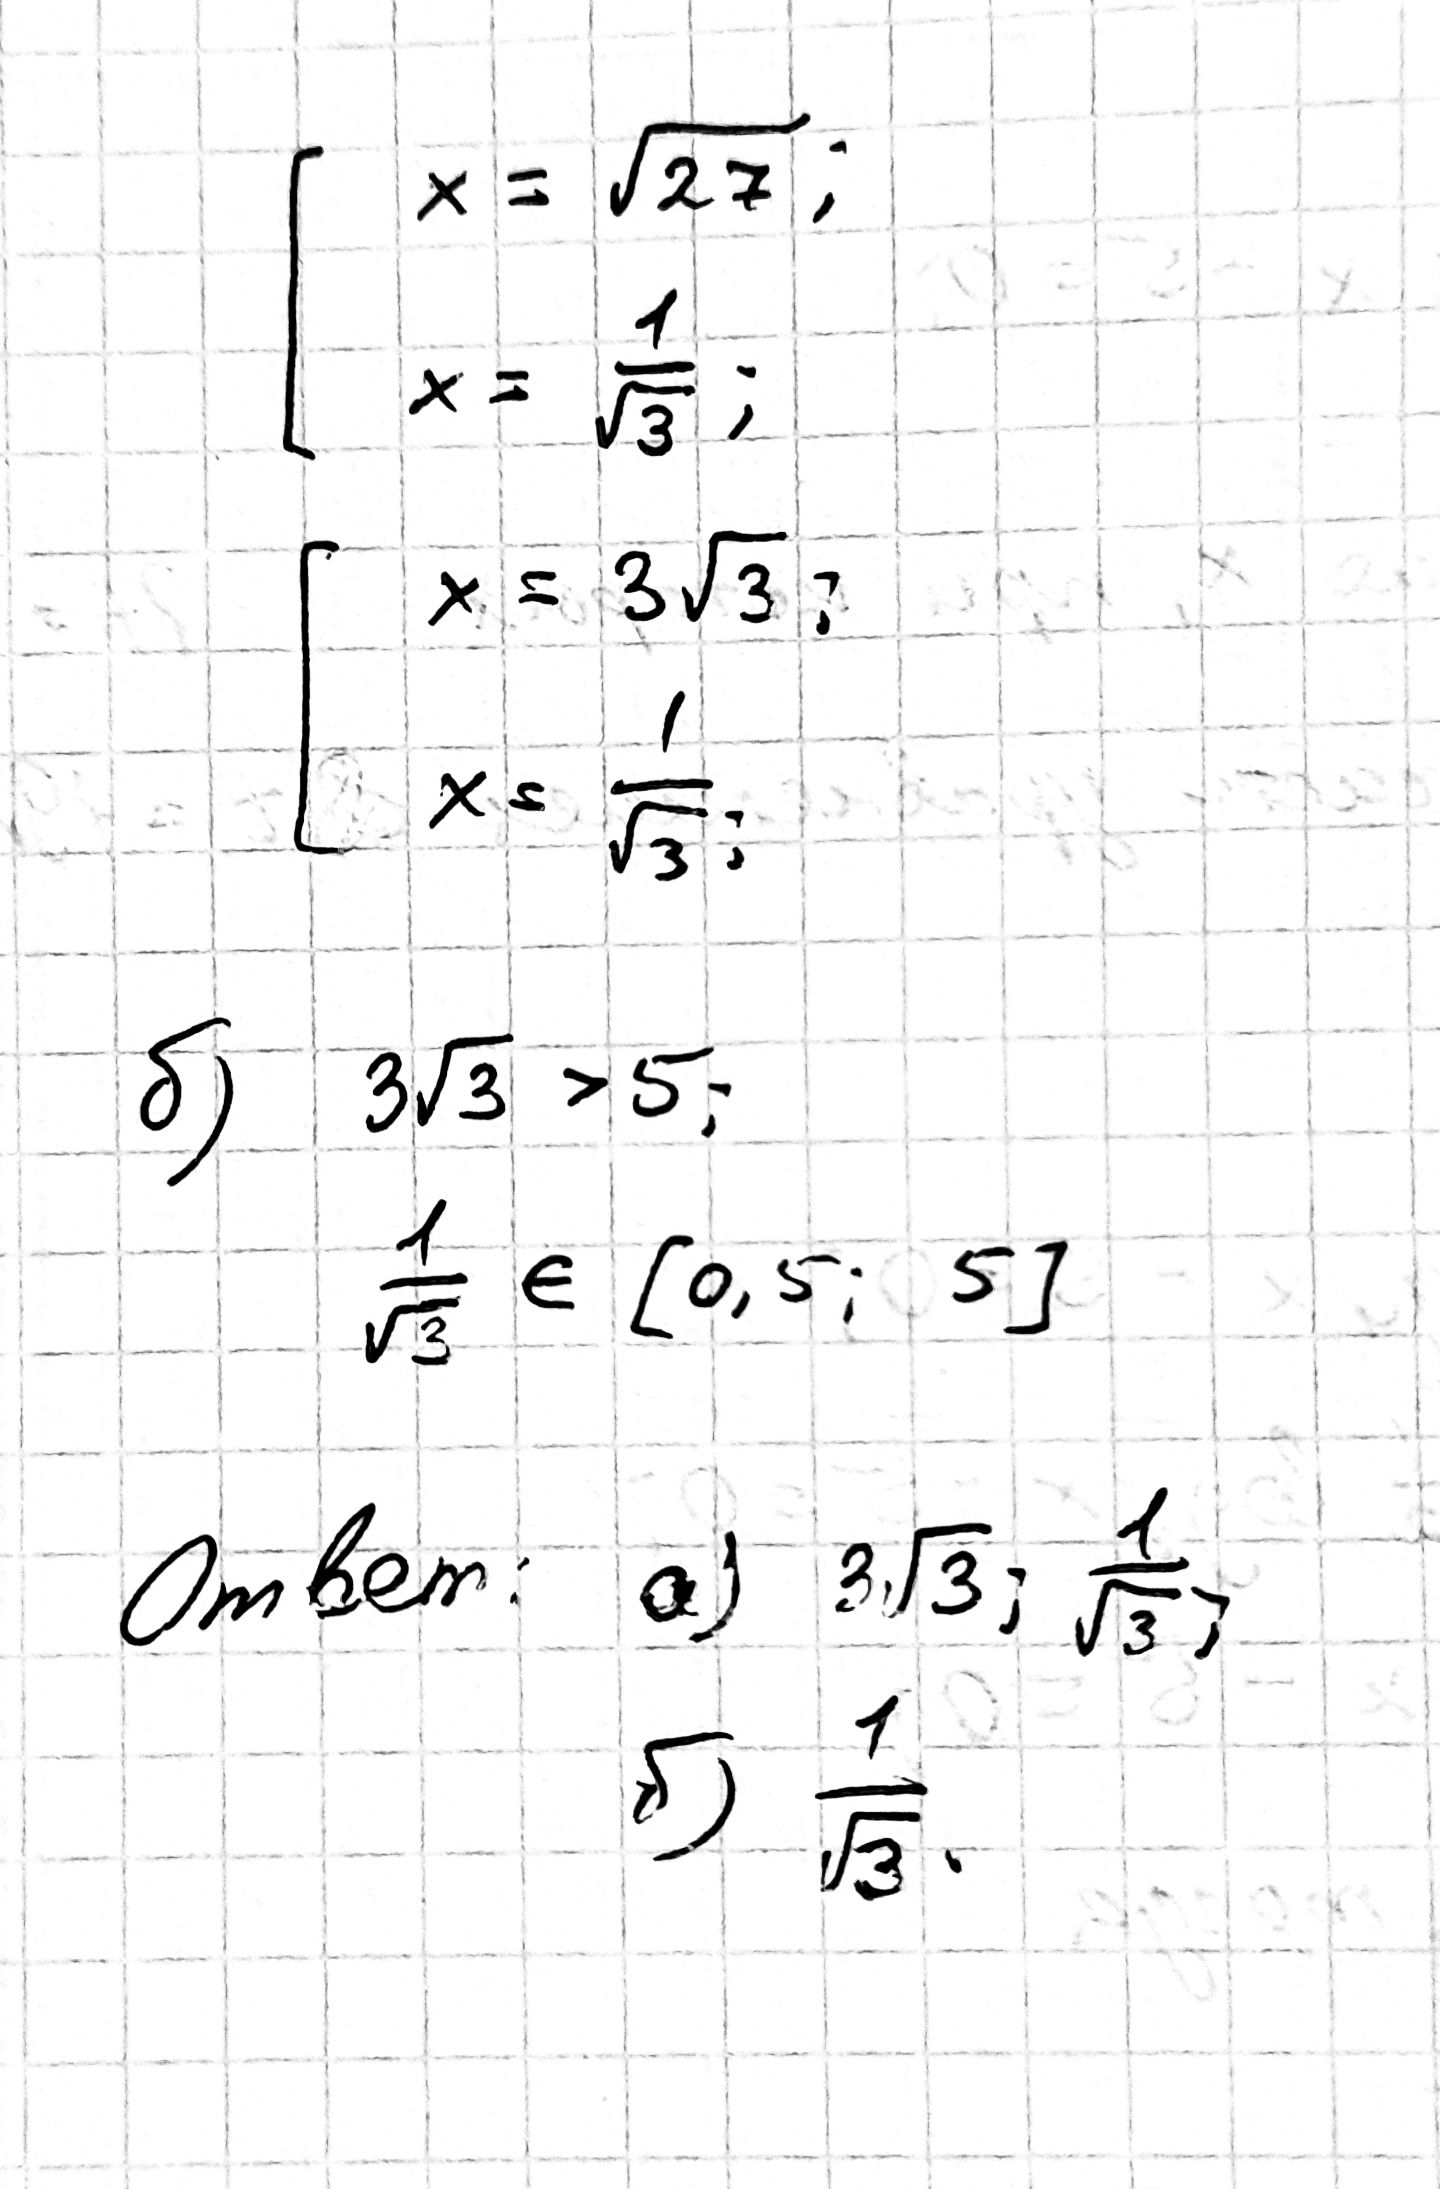 x = √27;
x = 1/√3;
x = 3√3;
x = 1/√3;
б) 3√3 > 5;
1/√3 ∈ [0,5; 5]
Ответ: а) 3√3; 1/√3;
б) 1/√3.